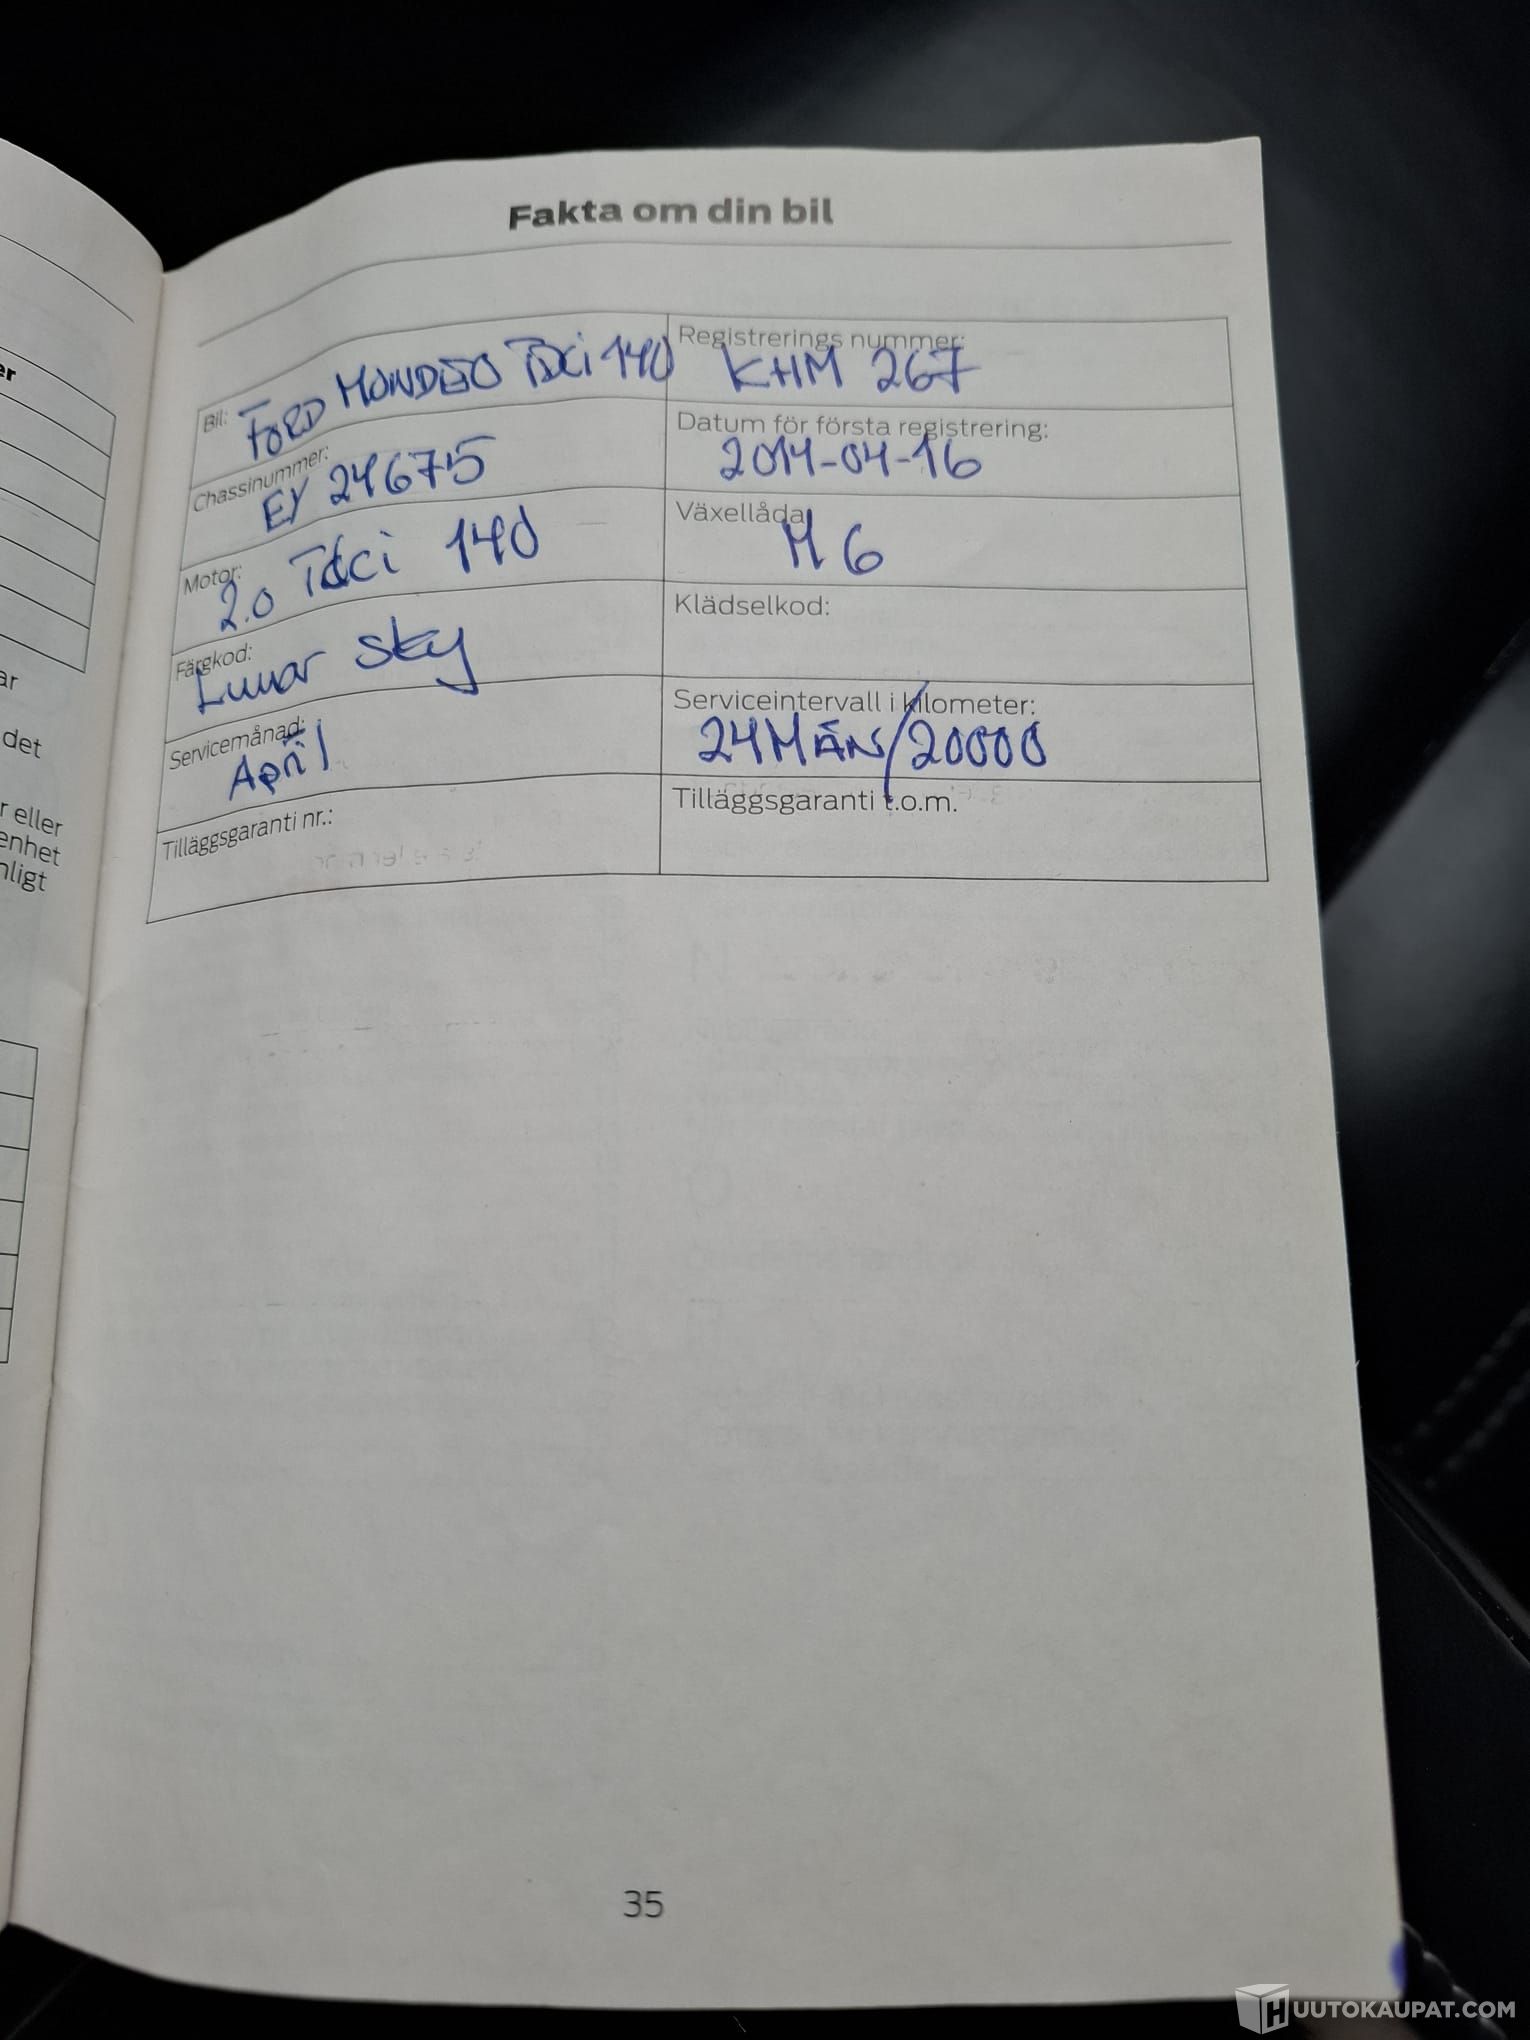 er
ar
det
r eller
enhet
nligt
Fakta om din bil
Bil: FORD MONDEO TDCi 140
Registrerings nummer: KHM 267
Chassinummer: EY 24675
Datum för första registrering: 2014-04-16
Motor: 2.0 Tdci 140
Växellåda M6
Färgkod: Lunar sky
Klädselkod:
Servicemånad: April
Serviceintervall i kilometer: 24 MÅN/20000
Tilläggsgaranti nr.:
Tilläggsgaranti t.o.m.
35
HUUTOKAUPAT.COM